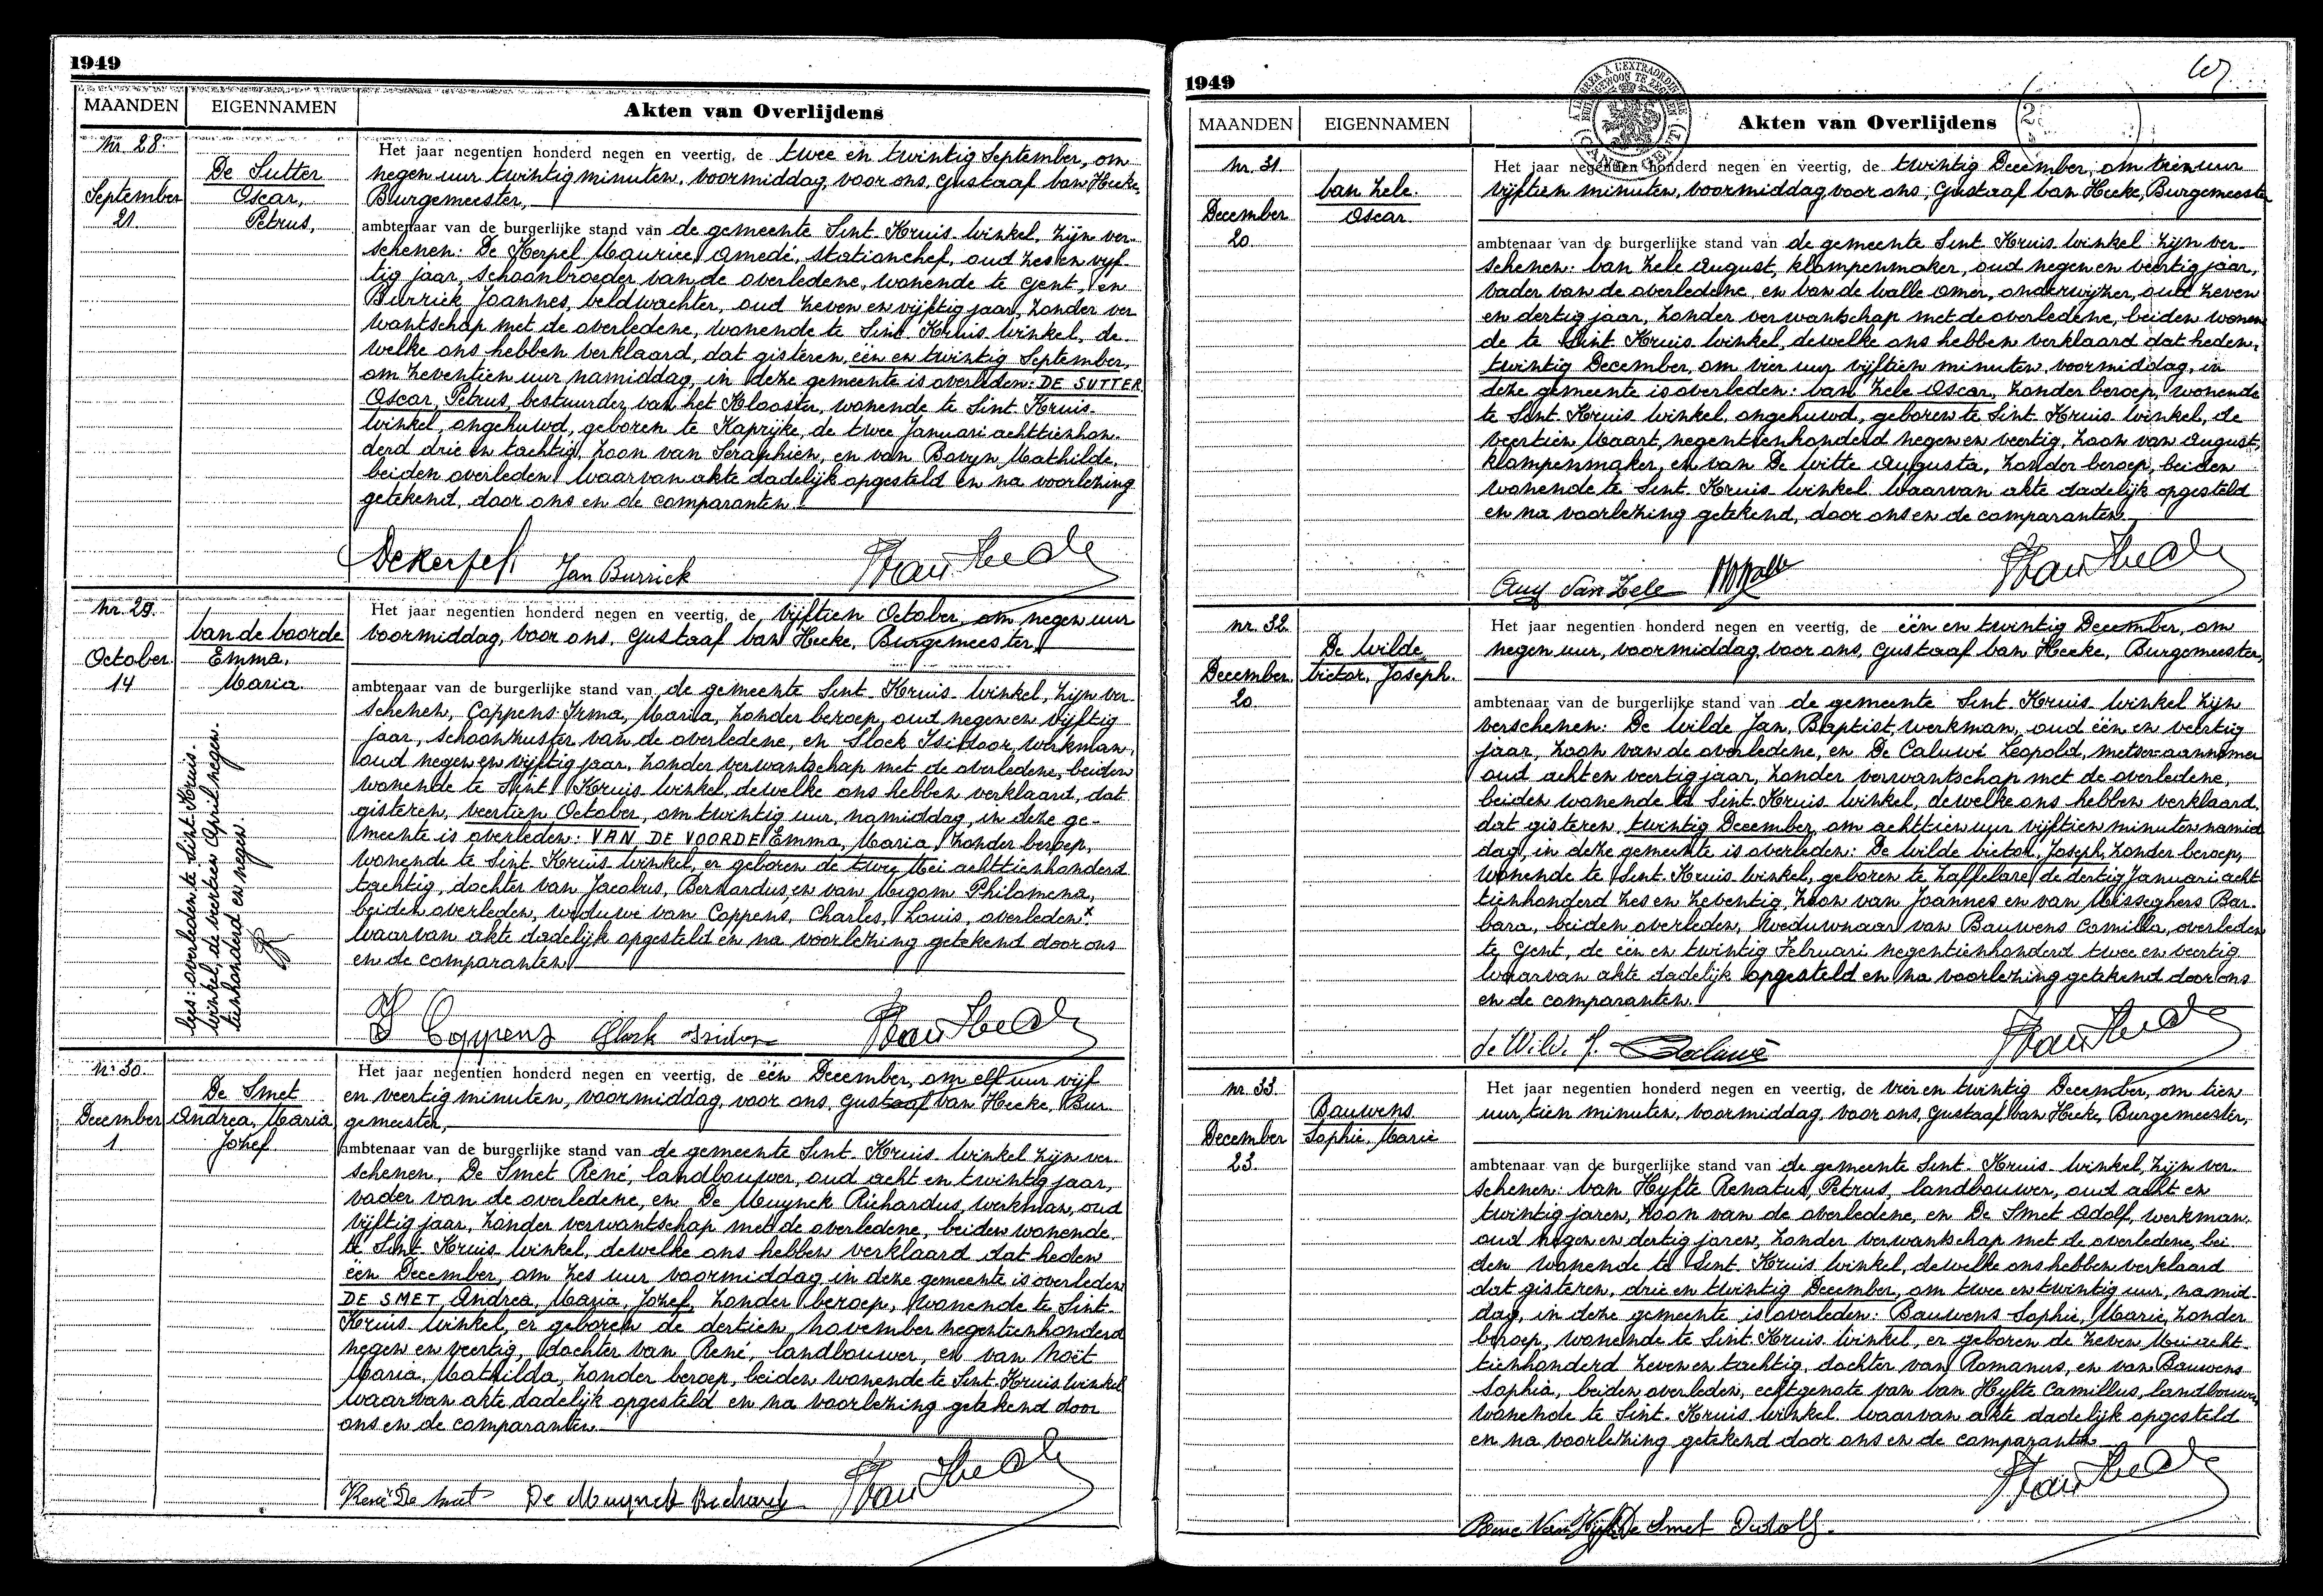 1949
MAANDEN
EIGENNAMEN
Akten van Overlijdens
Nr. 28.
De Sutter
Oscar,
Petrus,
September
21.
Het jaar negentien honderd negen en veertig, de twee en twintig September, om
negen uur twintig minuten, voormiddag, voor ons, Gustaaf Van Hecke,
Burgemeester,
ambtenaar van de burgerlijke stand van de gemeente Sint-Kruis-Winkel, zijn ver-
schenen: De Kerpel Maurice, Amedé, stationchef, oud zes en vijf-
tig jaar, schoonbroeder van de overledene, wonende te Gent, en
Burrick Joannes, veldwachter, oud zeven en vijftig jaar, zonder ver
wantschap met de overledene, wonende te Sint-Kruis-Winkel, de-
welke ons hebben verklaard, dat gisteren, één en twintig September,
om zeventien uur namiddag, in deze gemeente is overleden: DE SUTTER
Oscar, Petrus, bestuurder van het Klooster, wonende te Sint-Kruis-
Winkel, ongehuwd, geboren te Kaprijke, de twee Januari achttienhon-
derd drie en tachtig, zoon van Séraphien, en van Bovyn Mathilde,
beiden overleden. Waarvan akte dadelijk opgesteld en na voorlezing
getekend, door ons en de comparanten.
Dekerpel. Jan Burrick Van Hecke
Nr. 29.
Van de Voorde
Emma,
Maria.
October
14
Het jaar negentien honderd negen en veertig, de vijftien October, om negen uur
voormiddag, voor ons, Gustaaf Van Hecke, Burgemeester,
ambtenaar van de burgerlijke stand van de gemeente Sint-Kruis-Winkel, zijn ver-
schenen, Coppens Irma, Maria, zonder beroep, oud negen en vijftig
jaar, schoonzuster van de overledene, en Slock Isidoor, werkman,
oud negen en vijftig jaar, zonder verwantschap met de overledene, beiden
wonende te Sint-Kruis-Winkel, dewelke ons hebben verklaard, dat
gisteren, veertien October, om twintig uur, namiddag, in deze ge-
meente is overleden: VAN DE VOORDE Emma, Maria, zonder beroep,
wonende te Sint-Kruis-Winkel, er geboren de twee Mei achttienhonderd
tachtig, dochter van Jacobus, Bernardus, en van Migom Philomena,
beiden overleden, weduwe van Coppens, Charles, Louis, overleden x
Waarvan akte dadelijk opgesteld en na voorlezing getekend door ons
en de comparanten
lees: overleden te Sint-Kruis-
Winkel, de veertien April negen-
tienhonderd en negen.
I Coppens Slock Isidoor Van Hecke
Nr. 30.
De Smet
Andrea, Maria
Jozef
December
1
Het jaar negentien honderd negen en veertig, de één December, om elf uur vijf
en veertig minuten, voormiddag, voor ons, Gustaaf Van Hecke, Bur-
gemeester,
ambtenaar van de burgerlijke stand van de gemeente Sint-Kruis-Winkel zijn ver-
schenen, De Smet René, landbouwer, oud acht en twintig jaar,
vader van de overledene, en De Muynck Richardus, werkman, oud
vijftig jaar, zonder verwantschap met de overledene, beiden wonende
te Sint-Kruis-Winkel, dewelke ons hebben verklaard dat heden
één December, om zes uur voormiddag in deze gemeente is overleden
DE SMET, Andrea, Maria, Jozef, zonder beroep, wonende te Sint-
Kruis-Winkel, er geboren de dertien november negentienhonderd
negen en veertig, dochter van René, landbouwer, en van Noët
Maria, Mathilda, zonder beroep, beiden wonende te Sint-Kruis-Winkel
Waarvan akte dadelijk opgesteld en na voorlezing getekend door
ons en de comparanten
René De Smet De Muynck Richard Van Hecke
1949
MAANDEN
EIGENNAMEN
Akten van Overlijdens
Nr. 31.
Van Zele.
Oscar
December
20.
Het jaar negentien honderd negen en veertig, de twintig December, om tien uur
vijftien minuten, voormiddag, voor ons, Gustaaf Van Hecke, Burgemeester
ambtenaar van de burgerlijke stand van de gemeente Sint-Kruis-Winkel zijn ver-
schenen: Van Zele August, klompenmaker, oud negen en veertig jaar,
vader van de overledene en Van de Walle Omer, onderwijzer, oud zeven
en dertig jaar, zonder verwantschap met de overledene, beiden wonen-
de te Sint-Kruis-Winkel, dewelke ons hebben verklaard dat heden,
twintig December, om vier uur vijftien minuten, voormiddag, in
deze gemeente is overleden: Van Zele Oscar, zonder beroep, wonende
te Sint-Kruis-Winkel, ongehuwd, geboren te Sint-Kruis-Winkel, de
veertien Maart, negentienhonderd negen en veertig, zoon van August,
klompenmaker, en van De Witte Augusta, zonder beroep, beiden
wonende te Sint-Kruis-Winkel. Waarvan akte dadelijk opgesteld
en na voorlezing getekend, door ons en de comparanten.
Aug Van Zele Van Hecke
Nr. 32.
De Wilde
Victor, Joseph.
December
20
Het jaar negentien honderd negen en veertig, de één en twintig December, om
negen uur, voormiddag, voor ons, Gustaaf Van Hecke, Burgemeester,
ambtenaar van de burgerlijke stand van de gemeente Sint-Kruis-Winkel zijn
verschenen: De Wilde Jan, Baptist, werkman, oud één en veertig
jaar, zoon van de overledene, en De Caluwé Leopold, metser-aannemer
oud acht en veertig jaar, zonder verwantschap met de overledene,
beiden wonende te Sint-Kruis-Winkel, dewelke ons hebben verklaard
dat gisteren, twintig December, om achttien uur vijftien minuten namid-
dag, in deze gemeente is overleden: De Wilde Victor, Joseph, zonder beroep,
wonende te Sint-Kruis-Winkel, geboren te Zaffelare de dertig Januari acht-
tienhonderd zes en zeventig, zoon van Joannes en van Misseghers Bar-
bara, beiden overleden, weduwnaar van Bauwens Camilla, overleden
te Gent, de één en twintig Februari negentienhonderd twee en veertig
Waarvan akte dadelijk opgesteld en na voorlezing getekend door ons
en de comparanten.
de Wilde J. Decaluwé Van Hecke
Nr. 33.
Bauwens
Sophie, Marie
December
23
Het jaar negentien honderd negen en veertig, de vier en twintig December, om tien
uur, tien minuten, voormiddag, voor ons, Gustaaf Van Hecke, Burgemeester,
ambtenaar van de burgerlijke stand van de gemeente Sint-Kruis-Winkel, zijn ver-
schenen: Van Hyfte Renatus, Petrus, landbouwer, oud acht en
twintig jaren, zoon van de overledene, en De Smet Adolf, werkman,
oud negen en dertig jaren, zonder verwantschap met de overledene, bei-
den wonende te Sint-Kruis-Winkel, dewelke ons hebben verklaard
dat gisteren, drie en twintig December, om twee en twintig uur, namid-
dag, in deze gemeente is overleden: Bauwens Sophie, Marie, zonder
beroep, wonende te Sint-Kruis-Winkel, er geboren de zeven Mei acht-
tienhonderd zeven en tachtig, dochter van Romanus, en van Bauwens
Sophia, beiden overleden, echtgenote van Van Hyfte Camillus, landbouwer
wonende te Sint-Kruis-Winkel. Waarvan akte dadelijk opgesteld
en na voorlezing getekend door ons en de comparanten
Van Hecke
Rene Van Hyfte De Smet Adolf.